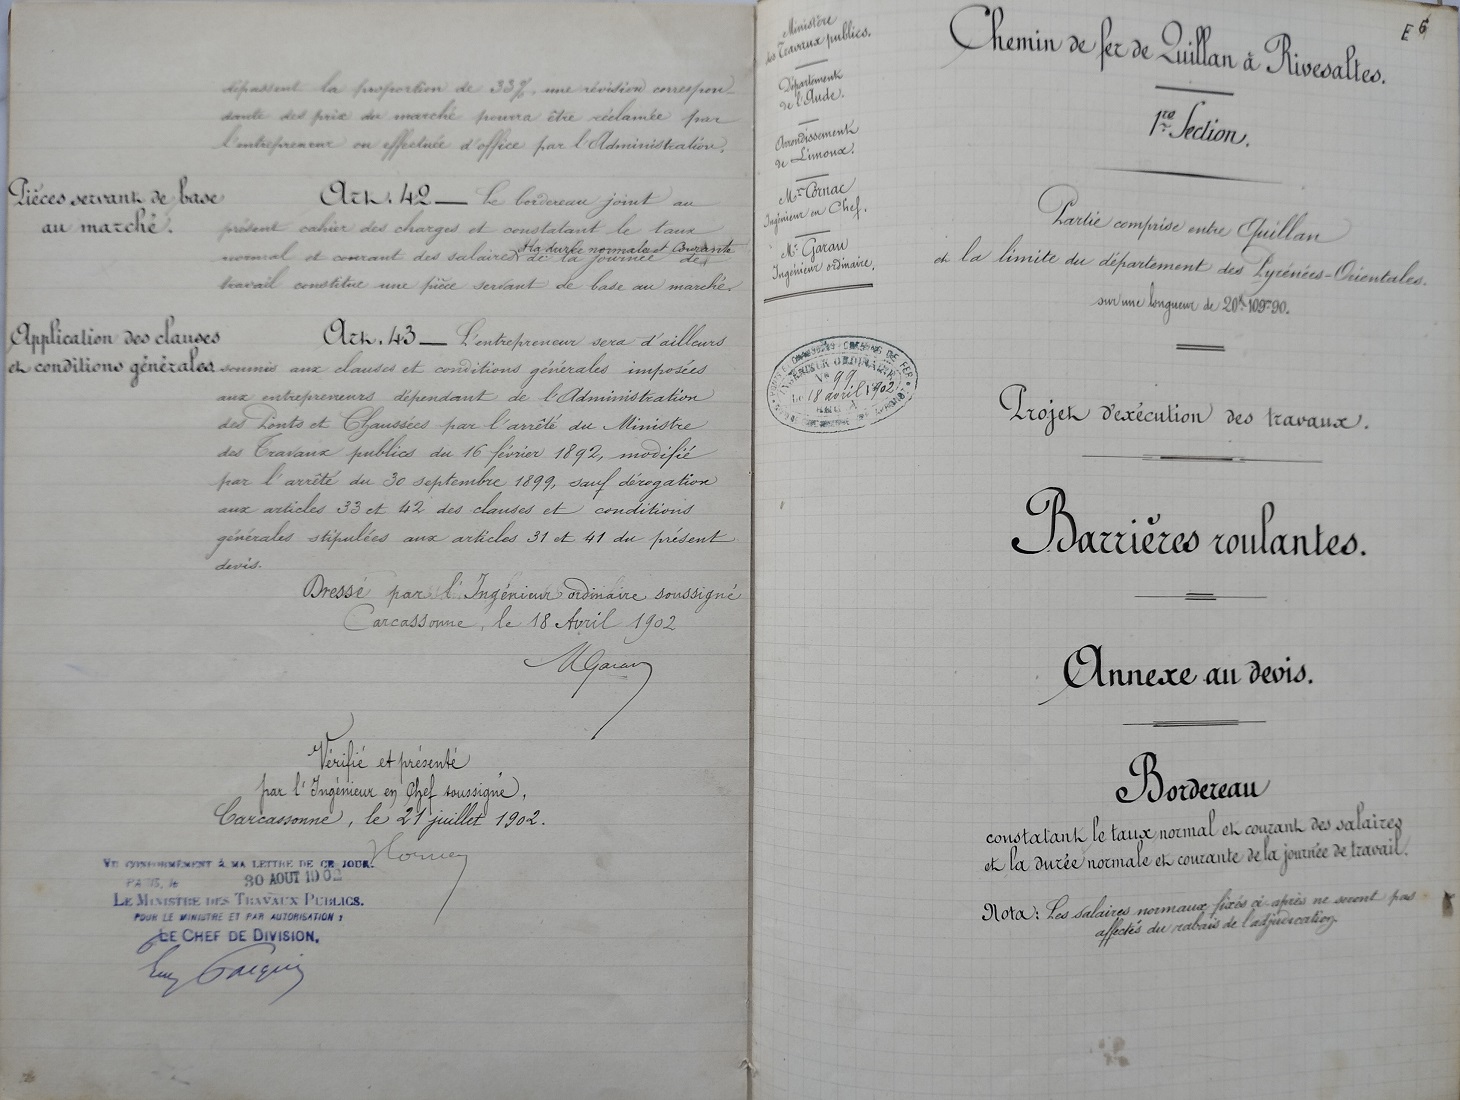 dépassent la proportion de 33%, une révision correspon-
dante des prix du marché pourra être réclamée par
l'entrepreneur ou effectuée d'office par l'Administration.
Pièces servant de base
au marché.
Art. 42 — Le bordereau joint au
présent cahier des charges et constatant le taux
et la durée normale et courante
normal et courant des salaires de la journée de
travail constitue une pièce servant de base au marché.
Application des clauses
et conditions générales.
Art. 43 — L'entrepreneur sera d'ailleurs
soumis aux clauses et conditions générales imposées
aux entrepreneurs dépendant de l'Administration
des Ponts et Chaussées par l'arrêté du Ministre
des Travaux publics du 16 février 1892, modifié
par l'arrêté du 30 septembre 1899, sauf dérogation
aux articles 33 et 42 des clauses et conditions
générales stipulées aux articles 31 et 41 du présent
devis.
Dressé par l'Ingénieur ordinaire soussigné
Carcassonne, le 18 Avril 1902
MGarau
Vérifié et présenté
par l'Ingénieur en Chef soussigné,
Carcassonne, le 21 juillet 1902.
VU CONFORMÉMENT À MA LETTRE DE CE JOUR.
PARIS, le 30 AOUT 1902
LE MINISTRE DES TRAVAUX PUBLICS.
POUR LE MINISTRE ET PAR AUTORISATION :
LE CHEF DE DIVISION,
E 6
Ministère
des Travaux publics.
Département
de l'Aude.
Arrondissement
de Limoux.
Mr Cornac
Ingénieur en Chef.
Mr Garau
Ingénieur ordinaire.
INGÉNIEUR ORDINAIRE
No 99
le 18 avril 1902
Chemin de fer de Quillan à Rivesaltes.
1re Section.
Partie comprise entre Quillan
et la limite du département des Pyrénées-Orientales.
sur une longueur de 20k 109m 90.
Projet d'exécution des travaux.
Barrières roulantes.
Annexe au devis.
Bordereau
constatant le taux normal et courant des salaires
et la durée normale et courante de la journée de travail.
Nota : Les salaires normaux fixés ci-après ne seront pas
affectés du rabais de l'adjudication.